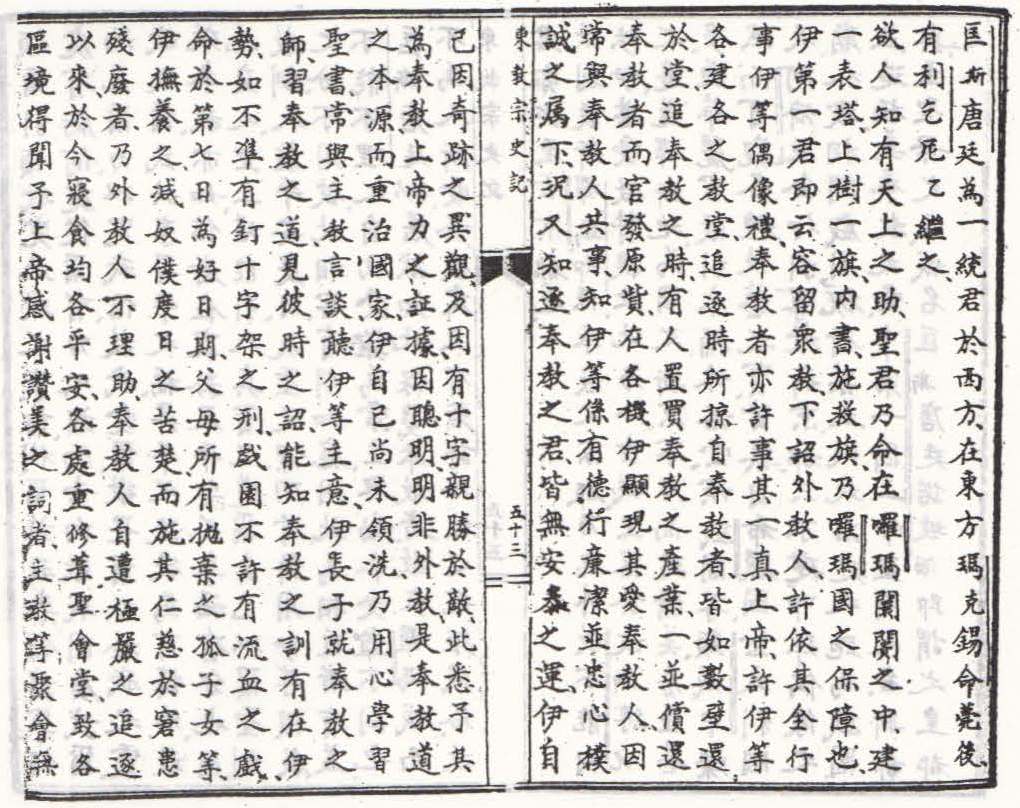 匡斯唐廷為一統君於西方、在東方瑪克錫命薨後、
有利乞尼乙繼之、
欲人知有天上之助、聖君乃命在囉瑪闤闠之中、建
一表塔、上樹一旗、內書、施救旗、乃囉瑪國之保障也、
伊第一君即云容留眾教、下詔外教人、許依其全行
事伊等偶像禮、奉教者亦許事其一真上帝、許伊等
各建各之教堂、追逐時所掠、自奉教者、皆如數璧還
於堂、追奉教之時、有人置買奉教之產業、一並償還
奉教者、而官發原貲、在各機伊顯現其愛奉教人、因
常與奉教人共事、知伊等係有德行廉潔並忠心樸
誠之屬下、況又知逐奉教之君、皆無安泰之運、伊自
東教宗史記
五十三
己因奇跡之異觀、及因有十字親勝於敵、此悉予其
為奉教上帝力之証據、因聰明、明非外教、是奉教道
之本源、而重治國家、伊自己尚未領洗、乃用心學習
聖書常與主教言談、聽伊等主意、伊長子就奉教之
師、習奉教之道、見彼時之詔、能知奉教之訓有在伊
勢、如不准有釘十字架之刑、戲園不許有流血之戲、
命於第七日為好日期、父母所有拋棄之孤子女等、
伊撫養之、減奴僕度日之苦楚而施其仁慈於窘患
殘廢者、乃外教人不理助、奉教人自遭極嚴之追逐
以來於今寢食均各平安、各處重修葺聖會堂、致各
區境得聞予上帝感謝讚美之詞者、主教等聚會無